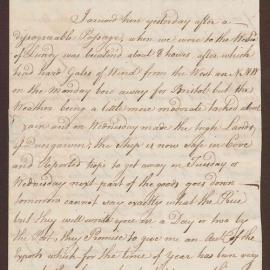 I arrived here yesterday after a
disagreeable Passage, when we were to the West
of Lundy was becalmed about 8 hours, after which
had hard Gales of Wind from the West and N NW
on the Monday bore away for Bristol but the
Weather being a little more moderate tacked about
again and on Wednesday made the high Lands
of Dungarvon; the Ship is now safe in Cove
and Reported hope to get away on Tuesday or
Wednesday next part of the goods goes down
tomorrow cannot say exactly what the Price
but they will write you in a Day or two by
the Post, they Promise to give me an Acct. of the
Exports which for the time of Year has been very